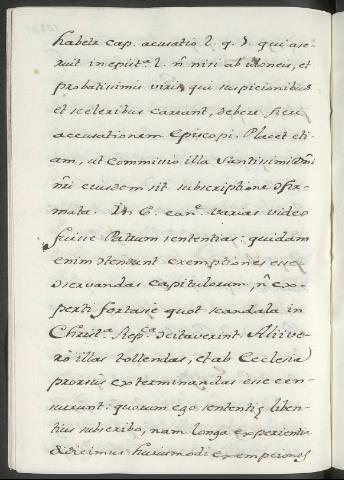 habetr cap. acusatio 2. q. 7. qui ase-
ruit in epist.ª 2. ñ nisi ab idoneis, et
probatissimis viris qui suspicionibus
et sceleribus careant, debere fieri
accusationem Episcopi. Placet eti-
am, ut Commissio illa Santissimi Dñi
ñri eiusdem sit subscriptione cfir-
mata. In 6. can.ᵉ varias video
fuisse Patrum sententias: quidam
enim ctendunt exemptiones esse
cservandas capitulorum, ñ ex-
perti fortasse quot scandala in
Christ.ª Rep.ᶜᵃ excitaverint Alii ve-
ro illas tollendas, et ab Ecclesia
prorsus exterminandas esse cen-
suerunt: quorum ego sententię liben-
tius subscribo, nam longa experientia
didicimus huiusmodi exempciones